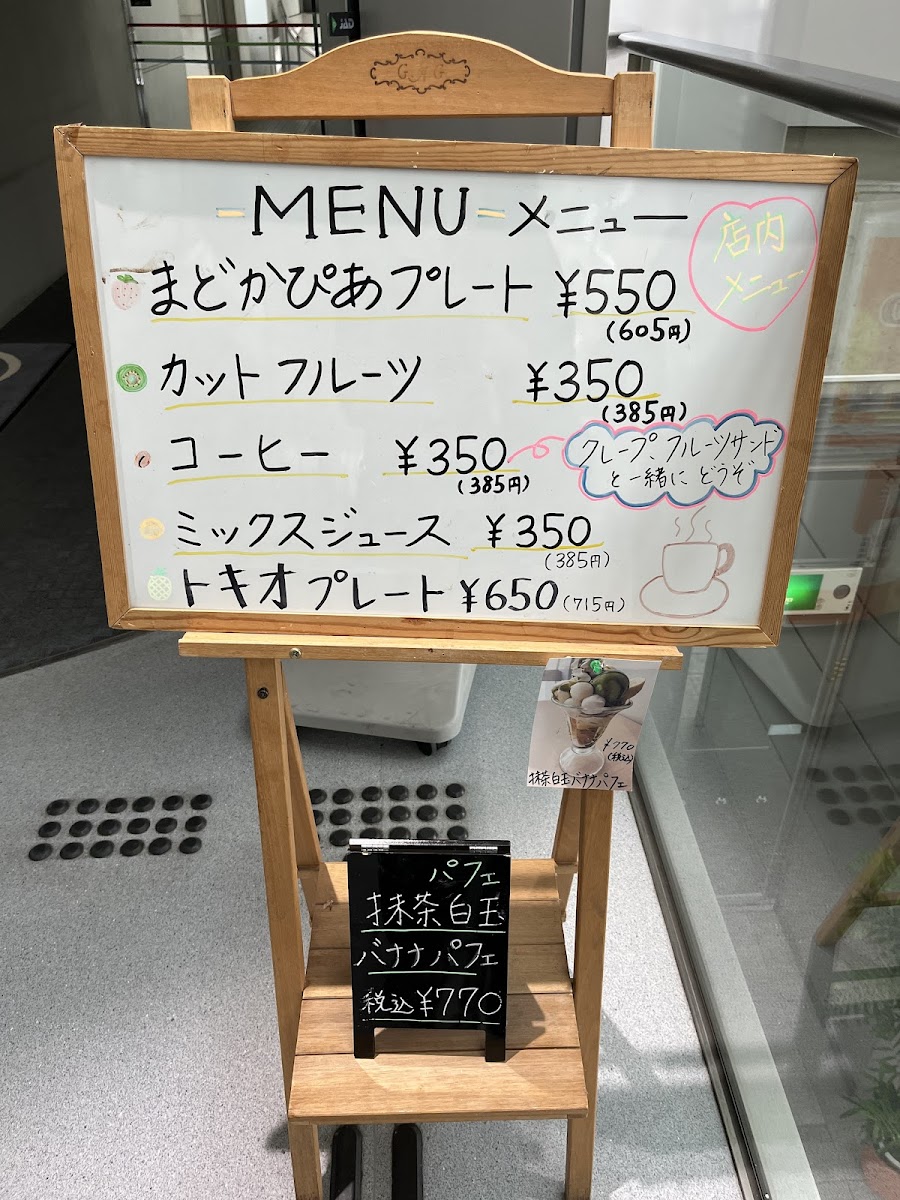 GAG
MENU メニュー
店内
メニュー
まどかぴあプレート ¥550
(605円)
カットフルーツ ¥350
(385円)
コーヒー ¥350
(385円)
クレープ、フルーツサンド
と一緒に どうぞ
ミックスジュース ¥350
(385円)
トキオプレート ¥650(715円)
¥770
(税込)
抹茶白玉バナナパフェ
パフェ
抹茶白玉
バナナパフェ
税込¥770